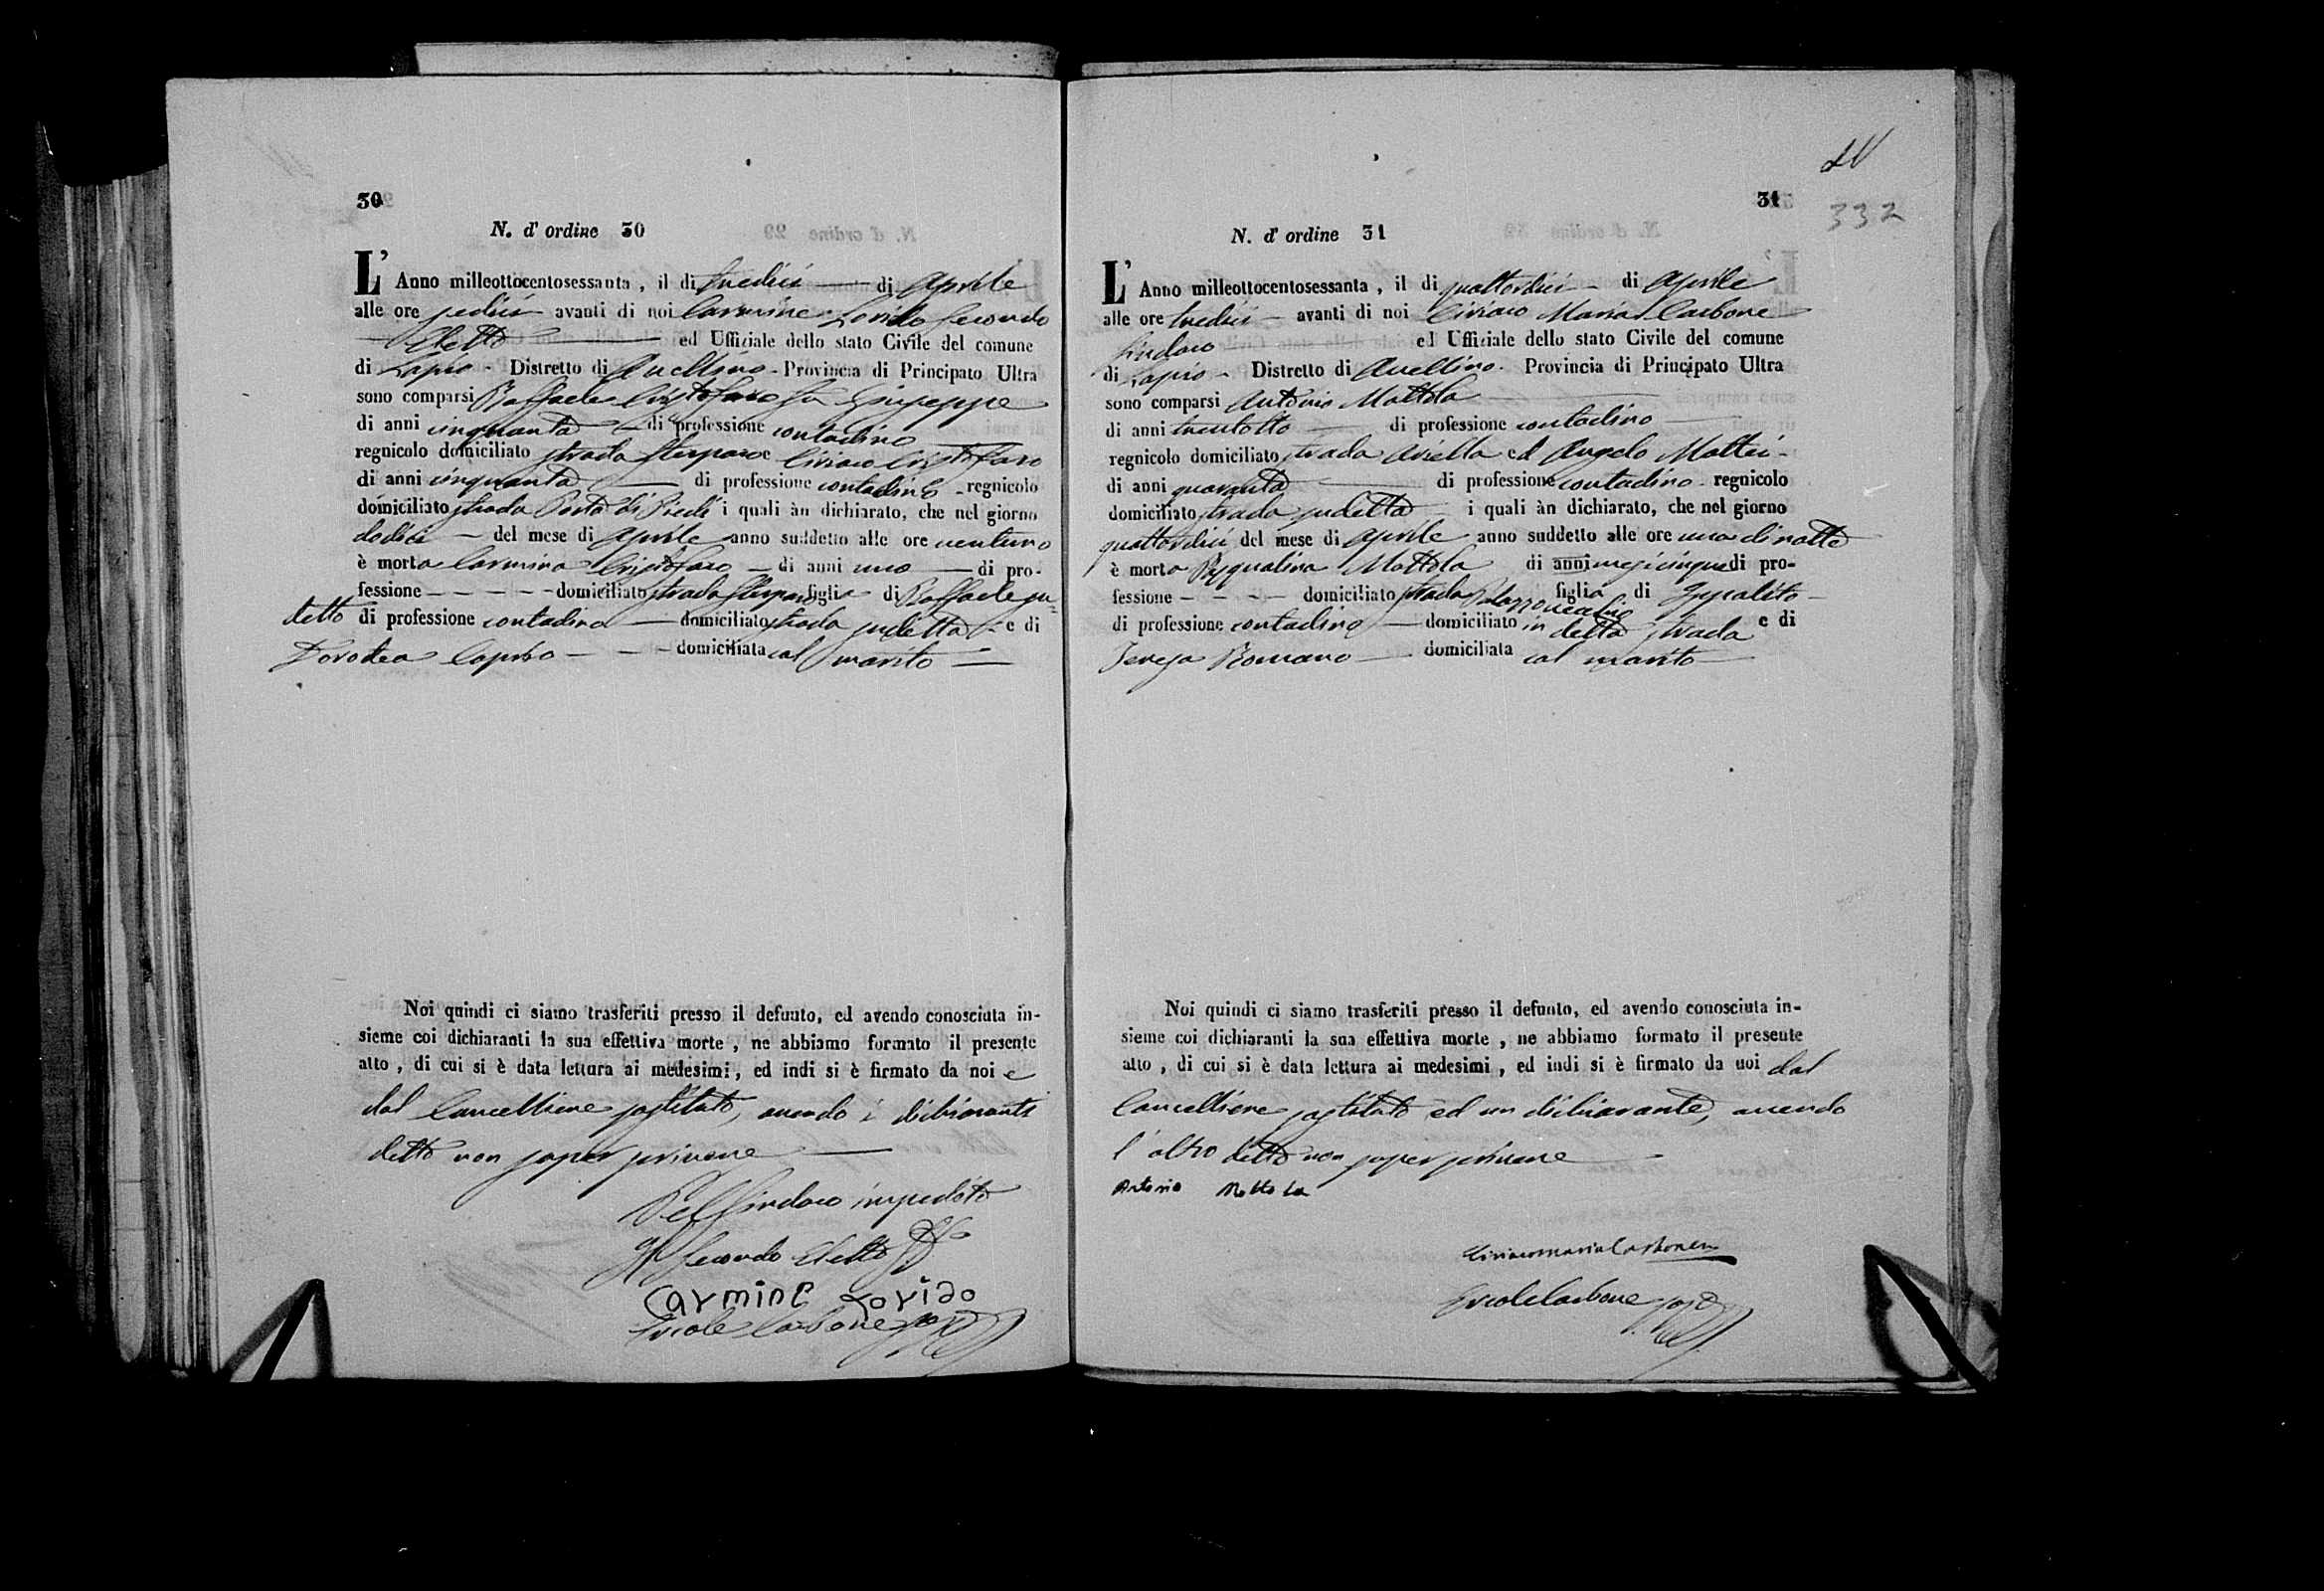 30
N. d' ordine 30
L' Anno milleottocentosessanta, il di tredici di Aprile
alle ore sedici avanti di noi Carmine Lorido Secondo
Eletto ed Uffiziale dello stato Civile del comune
di Lapio - Distretto di Avellino - Provincia di Principato Ultra
sono comparsi Raffaele Cristofaro fu Giuseppe
di anni cinquanta di professione contadino
regnicolo domiciliato strada e Ciriaco Cristofaro
di anni cinquanta di professione contadino - regnicolo
domiciliato strada Porta di Piedi i quali àn dichiarato, che nel giorno
dodici - del mese di Aprile anno suddetto alle ore ventuno
è morta Carmina Cristofaro - di anni uno - di pro-
fessione - - - - - domiciliato strada figlia di Raffaele su=
detto di professione contadino - domiciliato strada sudetta - e di
Dorotea Caprio - - - domiciliata col marito
Noi quindi ci siamo trasferiti presso il defunto, ed avendo conosciuta in-
sieme coi dichiaranti la sua effettiva morte, ne abbiamo formato il presente
atto, di cui si è data lettura ai medesimi, ed indi si è firmato da noi e
dal Cancelliere sostituto, avendo i dichiaranti
detto non saper scrivere
Pel Sindaco impedito
Il Secondo Eletto
Carmine Lorido
Ercole Carbone
LV
31
332
N. d' ordine 31
L' Anno milleottocentosessanta, il di quattordici - di Aprile
alle ore tredici - avanti di noi Ciriaco Maria Carbone
Sindaco ed Uffiziale dello stato Civile del comune
di Lapio - Distretto di Avellino - Provincia di Principato Ultra
sono comparsi Antonio Mottola
di anni trentotto di professione contadino
regnicolo domiciliato strada Ariella ed Angelo Mattei -
di anni quaranta di professione contadino - regnicolo
domiciliato strada sudetta i quali àn dichiarato, che nel giorno
quattordici del mese di Aprile anno suddetto alle ore una di notte
è morta Pasqualina Mottola di anni mesi cinque di pro-
fessione - - - - domiciliato strada Palazzovecchio figlia di Ippolito -
di professione contadino - domiciliato in detta strada e di
Teresa Romano - domiciliata col marito
Noi quindi ci siamo trasferiti presso il defunto, ed avendo conosciuta in-
sieme coi dichiaranti la sua effettiva morte, ne abbiamo formato il presente
atto, di cui si è data lettura ai medesimi, ed indi si è firmato da noi dal
Cancelliere sostituto ed un dichiarante, avendo
l'altro detto non saper scrivere
Antonio Mottola
Ciriaco Maria Carbone
Ercole Carbone